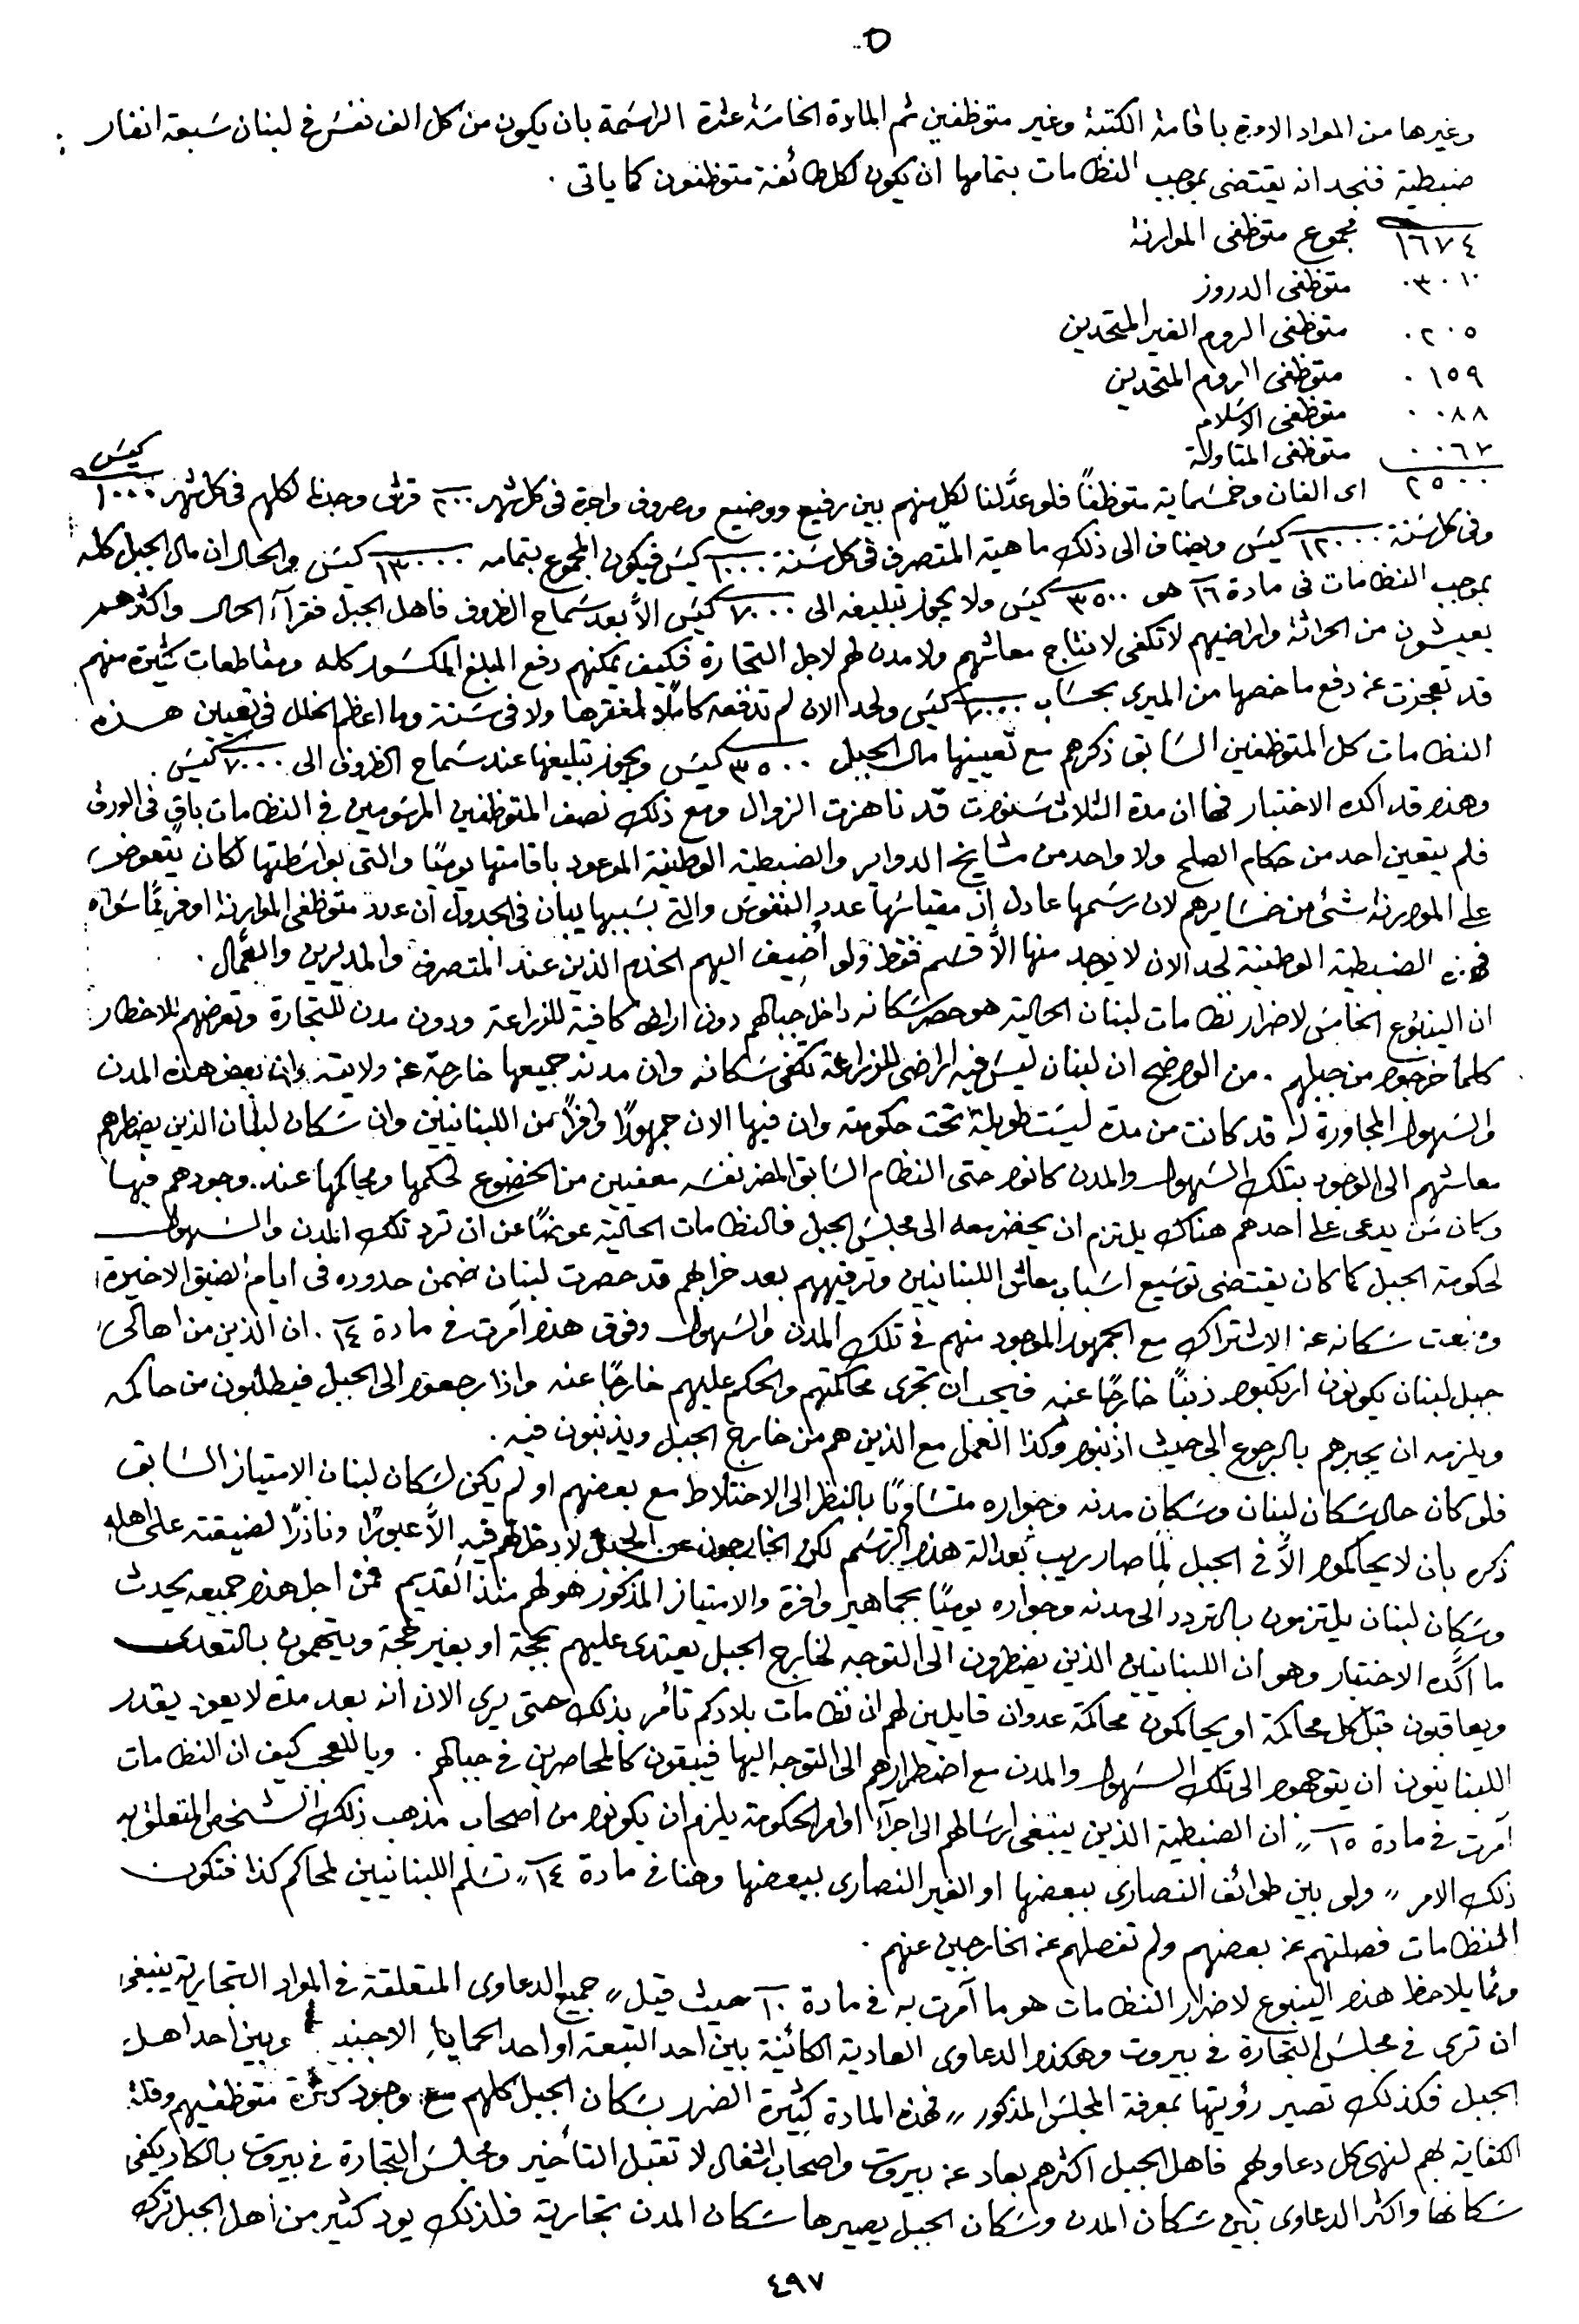 ٥..
وغيرها من المواد الامرة باقامة الكتبة وغير متوظفين ثم المادة الخامسة عشرة الراسمة بان يكون من كل الف نفس في لبنان سبعة انفار
ضبطية فنجد انه يقتضى بموجب النظامات بتمامها ان يكون لكل طائفة متوظفون كما ياتى .
١٦٧٤ مجموع متوظفى الموارنة
متوظفى الدروز
٠٢٠٥ متوظفى الروم الغير المتحدين
٠١٥٩ متوظفى الروم المتحدين
٠٠٨٨ متوظفى الاسلام
٠٠٦٧ متوظفى المتاولة
كيس
٢٥٠٠ اى الفان وخمسماية متوظفاً فلو عدَّلنا لكل منهم بين رفيع ووضيع ومصروف واجرة فى كل شهر ٢٠٠ قرش وجدنا لكلهم فى كل شهر ١٠٠٠
وفى كل سنة ١٢٠٠٠ كيس ويضاف الى ذلك ماهية المتصرف فى كل سنة ١٠٠٠ كيس فيكون المجموع بتمامه ١٣٠٠٠ كيس والحال ان مال الجبل كله
بموجب النظامات فى مادة ١٦ هو ٣٥٠٠ كيس ولا يجوز تبليغه الى ٧٠٠٠ كيس الاَّ بعد سماح الظروف فاهل الجبل فقرآء الحال واكثرهم
يعيشون من الحراثة واراضيهم لا تكفى لانتاج معاشهم ولا مدن لهم لاجل التجارة فكيف يمكنهم دفع المبلغ المكسور كله ومقاطعات كثيرة منهم
قد تعجزت عن دفع ما خصها من الميرى بحساب ٧٠٠٠ كيس ولحد الان لم تدفعه كاملاً لفقرها ولا فى سنة وما اعظم الخلل فى تعيين هذه
النظامات كل المتوظفين السابق ذكرهم مع تعيينها مال الجبل ٣٥٠٠ كيس ويجوز تبليغها عند سماح الظروف الى ٧٠٠٠ كيس .
وهذا قد اكده الاختبار فها ان مدة الثلاث سنوات قد ناهزت الزوال ومع ذلك نصف المتوظفين المرسومين في النظامات باقٍ فى الورق
فلم يتعين احد من حكام الصلح ولا واحد من مشايخ الدواير والضبطية الوطنية الموعود باقامتها يوميًا والتى بواسطتها لكان يتعوض
على الموارنة شئ من خسايرهم لان رسمها عادل اذ مقياسها عدد النفوس والتى بسببها يبان فى الجدول ان عدد متوظفى الموارنة اوفر مما سواه
فهذه الضبطية الوطنية لحد الان لا يوجد منها الاَّ قسم فقط ولو أضيف اليهم الخدم الذين عند المتصرف والمديرين والعمال .
ان الينبوع الخامس لاضرار نظامات لبنان الحالية هو حصر سكانه داخل جبالهم دون اراضٍ كافية للزراعة ودون مدن للتجارة وتعرضهم للاخطار
كلما خرجوا من جبلهم . من الواضح ان لبنان ليس فيه اراضى للزراعة تكفى سكانه وان مدنه جميعها خارجة عن ولايته وان بعض هذه المدن
والسهول المجاورة له قد كانت من مدة ليست طويلة تحت حكومته وان فيها الان جمهورًا وافرًا من اللبنانيين وان سكان لبنان الذين يضطرهم
معاشهم الى الوجود بتلك السهول والمدن كانوا حتى النظام السابق المضر نفسه معفيين من الخضوع لحكمها ومحاكمها عند وجودهم فيها
وكان مَن يدعى على احدهم هناك يلتزم ان يحضر معه الى مجلس الجبل فالنظامات الحالية عوضًا عن ان ترد تلك المدن والسهول
لحكومة الجبل كما كان يقتضى توسيع اسباب معاش اللبنانيين وترفيههم بعد خرابهم قد حصرت لبنان ضمن حدوده فى ايام الضيق الاخيرة
ومنعت سكانه عن الاشتراك مع الجمهور الموجود منهم فى تلك المدن والسهول وفوق هذا آمرت فى مادة ١٤ . ان الذين من اهالى
جبل لبنان يكونون ارتكبوا ذنبًا خارجًا عنه فيجب ان تجرى محاكمتهم والحكم عليهم خارجًا عنه واذا رجعوا الى الجبل فيطلبون من حاكمه
ويلزمه ان يجبرهم بالرجوع الى حيث اذنبوا وكذا العمل مع الذين هم من خارج الجبل ويذنبون فيه .
فلو كان حال سكان لبنان وسكان مدنه وجواره متساويًا بالنظر الى الاختلاط مع بعضهم او لم يكن لسكان لبنان الامتياز السابق
ذكره بان لا يحاكموا الاَّ فى الجبل لِما صار ريب بعدالة هذا الرسم لكن الخارجون عن الجبل لا دخل لهم فيه الاَّ عبورًا ونادرًا لضيقته على اهله
وسكان لبنان يلتزمون بالتردد الى مدنه وجواره يوميًا بجماهير وافرة والامتياز المذكور هو لهم منذ القديم فمن اجل هذا جميعه يحدث
ما اكّده الاختبار وهو ان اللبنانيين الذين يضطرون الى التوجه لخارج الجبل يعتدى عليهم بحجة او بغير حجة ويتهمون بالتعدى
ويعاقبون قبل كل محاكمة او يحاكمون محاكمة عدوان قايلين لهم ان نظامات بلادكم تأمر بذلك حتى يرى الان انه بعد مدة لا يعود يقدر
اللبنانيون ان يتوجهوا الى تلك السهول والمدن مع اضطرارهم الى التوجه اليها فيبقون كالمحاصرين فى جبالهم . ويا للعجب كيف ان النظامات
آمرت فى مادة ١٥ ,, ان الضبطية الذين ينبغى ارسالهم الى اجرآء اوامر الحكومة يلزم ان يكونوا من اصحاب مذهب ذلك الشخص المتعلق به
ذلك الامر ,, ولو بين طوائف النصارى ببعضها او الغير النصارى ببعضها وهنا فى مادة ١٤ ,, تسلم اللبنانيين لمحاكم كذا فتكون
النظامات فصلتهم عن بعضهم ولم تفصلهم عن الخارجين عنهم .
ومما يلاحظ هذا الينبوع لاضرار النظامات هو ما آمرت به فى مادة ١٠ حيث قيل ,, جميع الدعاوى المتعلقة فى المواد التجارية ينبغى
ان ترى فى مجلس التجارة فى بيروت وهكذا الدعاوى العادية الكائنة بين احد التبعة او احد الحمايا الاجنبيه وبين احد اهل
الجبل فكذلك تصير رؤيتها بمعرفة المجلس المذكور ,, فهذه المادة كثيرة الضرر بسكان الجبل كلهم مع وجود كثرة متوظفيهم وقلة
الكفاية بهم لنهى كل دعاويهم فاهل الجبل اكثرهم بعاد عن بيروت واصحاب اشغال لا تقبل التأخير ومجلس التجارة فى بيروت بالكاد يكفى
سكانها واكثر الدعاوى بين سكان المدن وسكان الجبل يصيرها سكان المدن تجارية فلذلك يود كثير من اهل الجبل ترك
٤٩٧